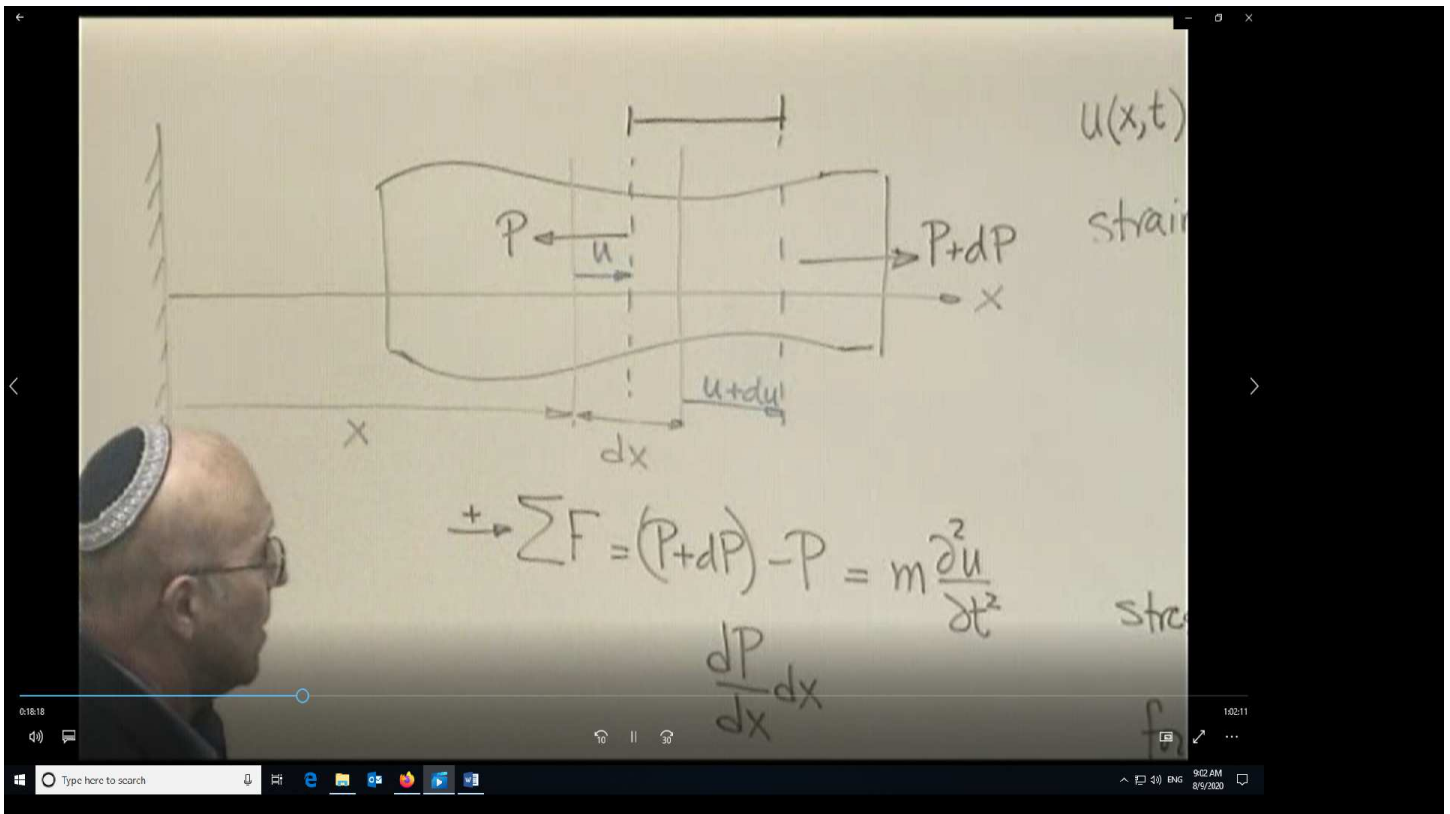 u(x,t)
strain
P
u
P+dP
x
u+du
x
dx
+ ΣF = (P+dP) - P = m ∂²u/∂t²
dP/dx dx
0:18:18
1:02:11
10
30
Type here to search
ENG
9:02 AM
8/9/2020